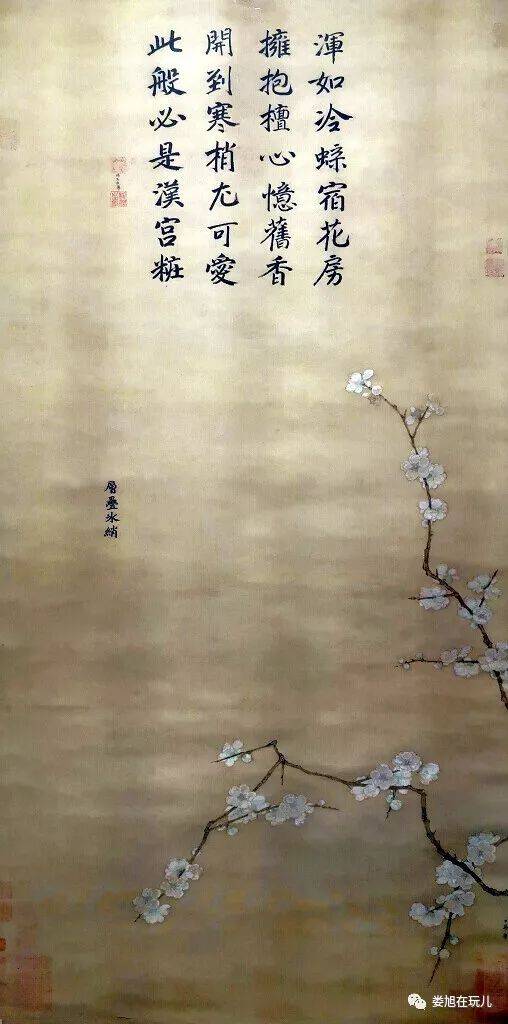 渾如冷蜨宿花房
擁抱檀心憶舊香
開到寒梢尤可愛
此般必是漢宮粧
層疊冰綃
娄旭在玩儿